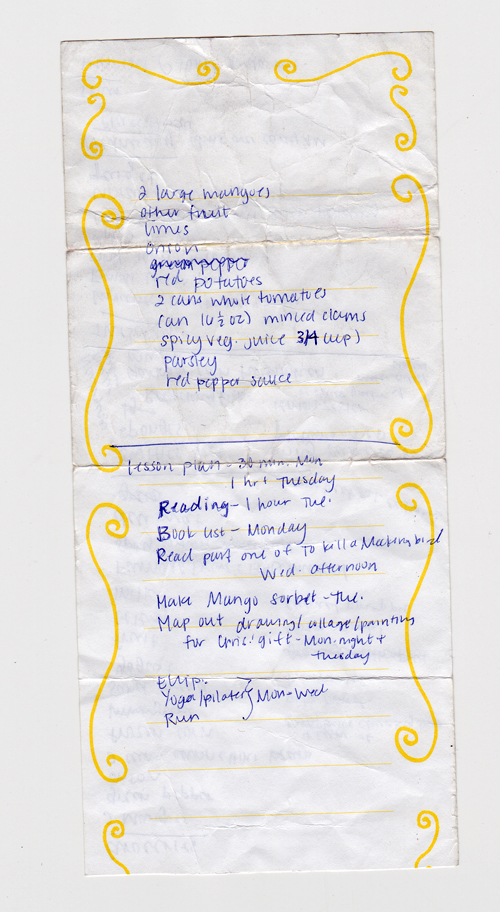 2 large mangoes
other fruit
limes
onion
green pepper
red potatoes
2 cans whole tomatoes
(an 16 ½ oz) minced clams
spicy veg. juice 3/4 cup)
parsley
red pepper sauce
lesson plan - 30 min. Mon
1 hr + Tuesday
Reading - 1 hour Tue.
Book list - Monday
Read part one of To Kill a Mockingbird
Wed. afternoon
Make Mango sorbet - Tue.
Map out drawing/collage/painting
for Chris' gift - Mon. night +
Tuesday
Ellip.
Yoga/pilates } Mon-Wed
Run